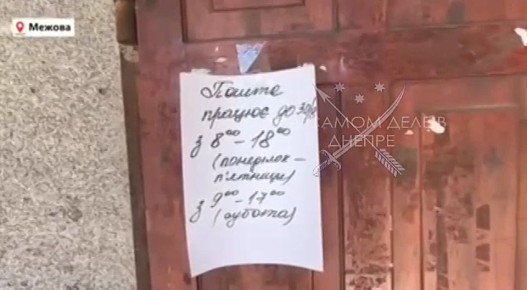 Межова
Пошта
працює до 30/8
з 8⁰⁰ – 18⁰⁰
(понеділок –
п'ятниця)
з 9⁰⁰ – 17⁰⁰
(субота)
САМОМ ДЕЛЕ В
ДНЕПРЕ